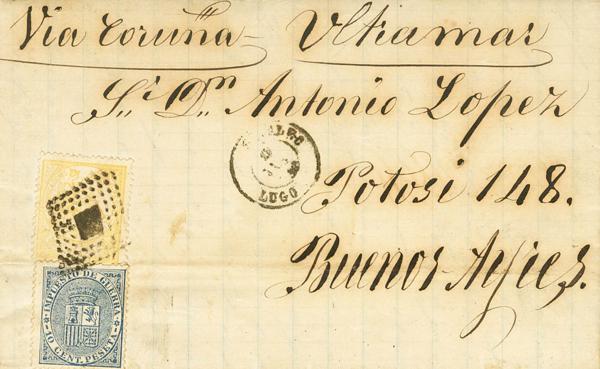 Via Coruña Ultramar
Sr. Dn. Antonio Lopez
LUGO
Potosi 148.
Buenos Ayres.
IMPUESTO DE GUERRA
10 CENT. PESETA